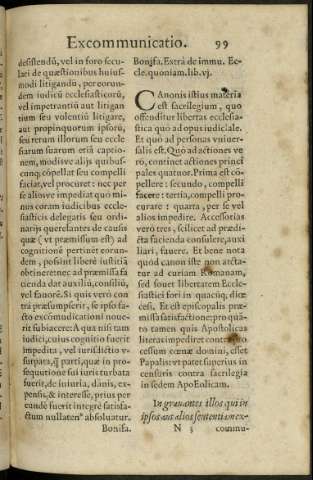 Excommunicatio. 99
desistendū, vel in foro secu-
lari de quæstionibus huius-
modi litigandū, per eorun-
dem iudicū ecclesiasticorū,
vel impetrantiū aut litigan
tium seu volentiū litigare,
aut propinquorum ipsorū,
seu rerum illorum seu eccle
siarum suarum etiā captio-
nem, modisve alijs quibus-
cunq; cōpellat seu compelli
faciat, vel procuret: nec per
se aliosve impediat quo mi-
nus coram iudicibus eccle-
siasticis delegatis seu ordi-
narijs querelantes de causis
quæ (vt præmissum est) ad
cognitionē pertinēt eorun-
dem, possint liberè iustitiā
obtinere: nec ad præmissa fa
cienda dat auxiliū, consiliū,
vel fauorē. Si quis verò con
trà præsumpserit, se ipso fa-
cto excōmunicationi noue-
rit subiacere: A qua nisi tam
iudici, cuius cognitio fuerit
impedita, vel iurisdictio v-
surpata, q̄ parti, quæ in pro-
sequutione sui iuris turbata
fuerit, de iniuria, dānis, ex-
pensis, & interesse, prius per
eundē fuerit integrè satisfa-
ctum nullaten⁹ absoluatur.
Bonifa.
Bonifa. Extrà de immu. Ec-
cle. quoniam. lib. vj.
CAnonis istius materia
est sacrilegium, quo
offenditur libertas ecclesia-
stica quò ad opus iudiciale.
Et quò ad personas vniuer-
salis est. Quò ad actiones ve
rò, continet actiones princi
pales quatuor. Prima est cō-
pellere: secundo, compelli
facere: tertia, compelli pro-
curare: quarta, per se vel
alios impedire. Accessorias
verò tres, scilicet ad prædi-
cta facienda consulere, auxi
liari, fauere. Et bene nota
quod canon iste non arcta-
tur ad curiam Romanam,
sed fouet libertatem Eccle-
siastici fori in quacūq; diœ-
cesi. Et est episcopalis præ-
missa satisfactione: pro quā-
to tamen quis Apostolicas
literas impediret contrà pro
cessum cœnæ domini, esset
Papalis: vt patet superius in
censuris contra sacrilegia
in sedem Apostolicam.
In grauantes illos qui in
ipsos aut alios sententiam ex-
N 3 commu-